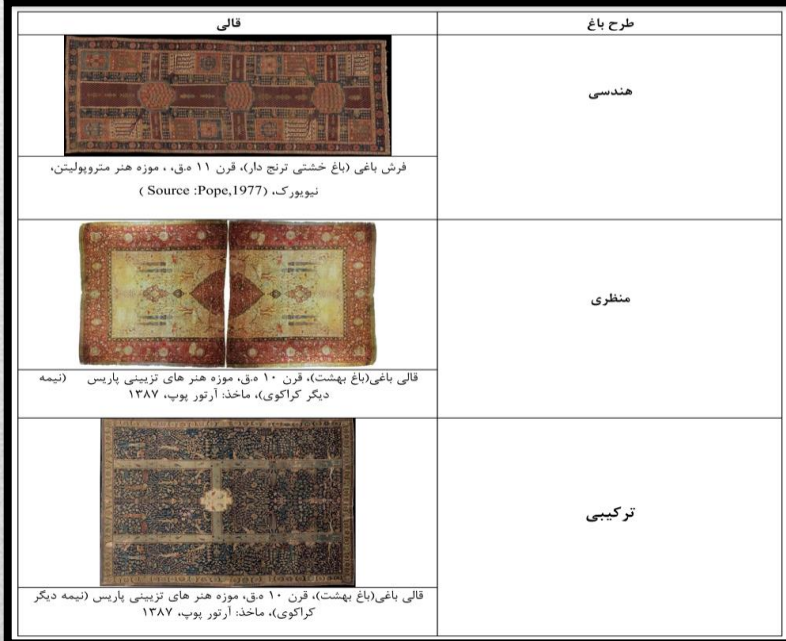 طرح باغ
قالی
هندسی
فرش باغی (باغ خشتی ترنج دار)، قرن ۱۱ ه.ق، ، موزه هنر متروپولیتن،
نیویورک، (Source :Pope,1977 )
منظری
قالی باغی(باغ بهشت)، قرن ۱۰ ه.ق، موزه هنر های تزیینی پاریس (نیمه
دیگر کراکوی)، ماخذ: آرتور پوپ، ۱۳۸۷
ترکیبی
قالی باغی(باغ بهشت)، قرن ۱۰ ه.ق، موزه هنر های تزیینی پاریس (نیمه دیگر
کراکوی)، ماخذ: آرتور پوپ، ۱۳۸۷